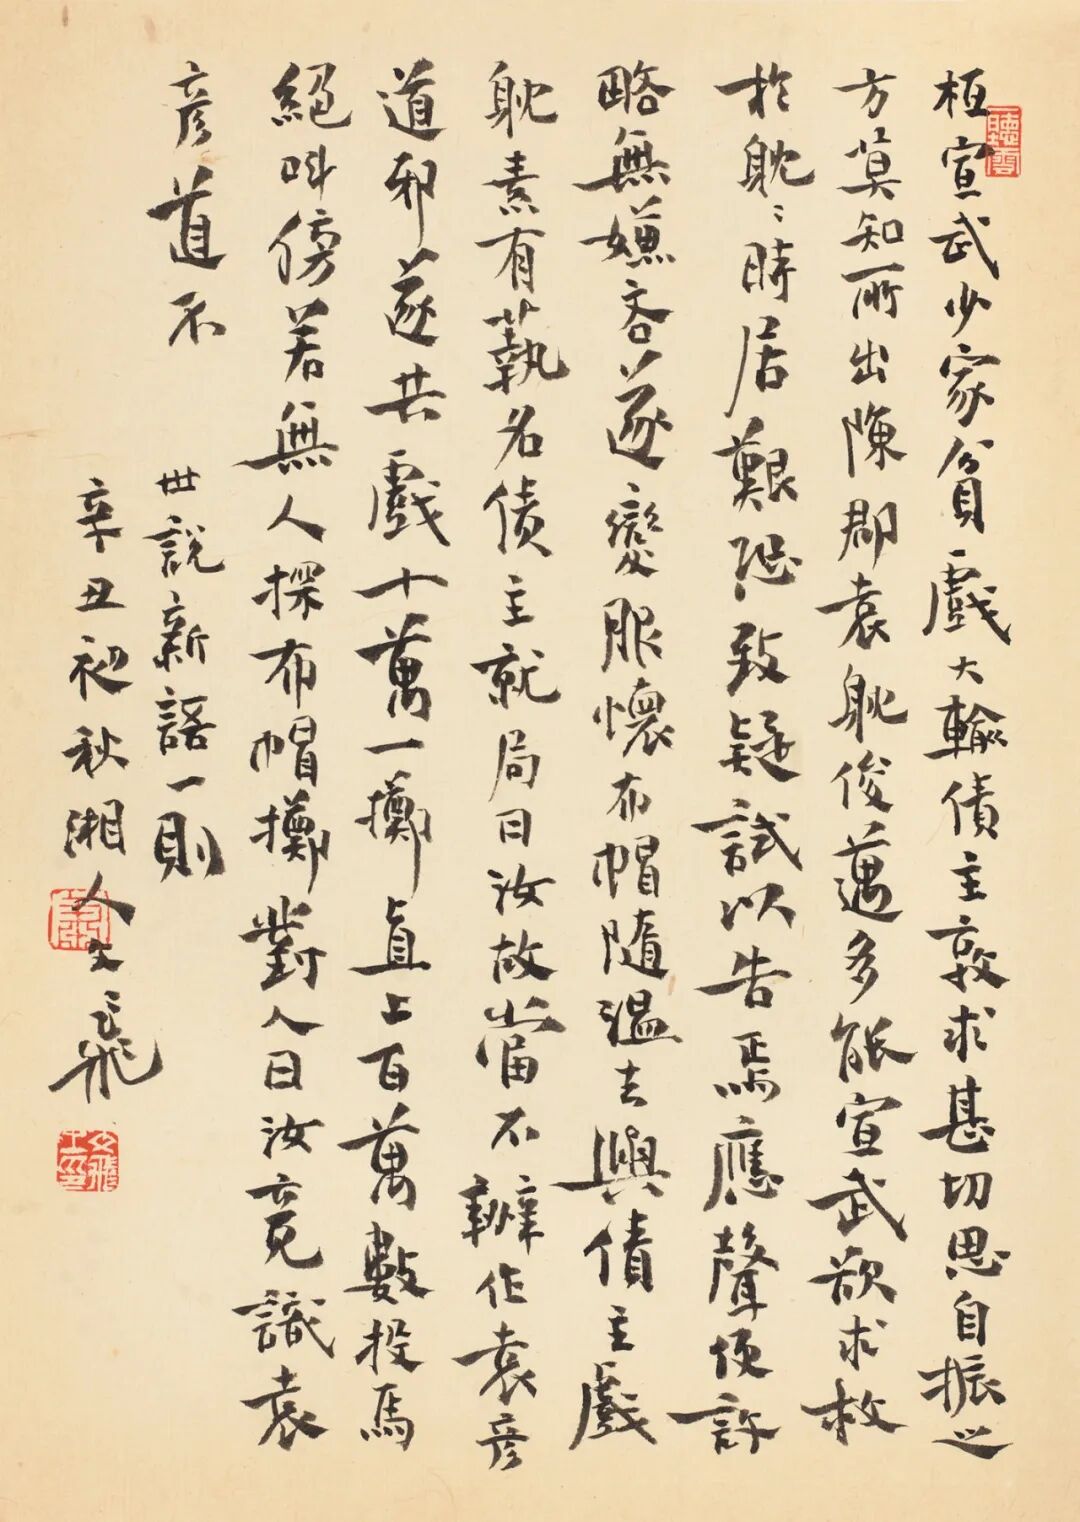 桓宣武少家貧戲大輸債主敦求甚切思自振之
方莫知所出陳郡袁耽俊邁多能宣武欲求救
於耽〻時居艱恐致疑試以告焉應聲便許
略無嫌吝遂變服懷布帽隨溫去與債主戲
耽素有蓺名債主就局曰汝故當不辦作袁彦
道邪遂共戲十萬一擲直上百萬數投馬
絕叫傍若無人探布帽擲對人曰汝竟識袁
彦道不
世說新語一則
辛丑初秋湘人文飛
聽雲